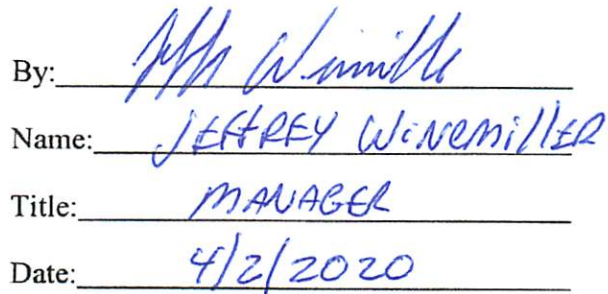 By:
Name: JEFFREY WINEMILLER
Title: MANAGER
Date: 4/2/2020